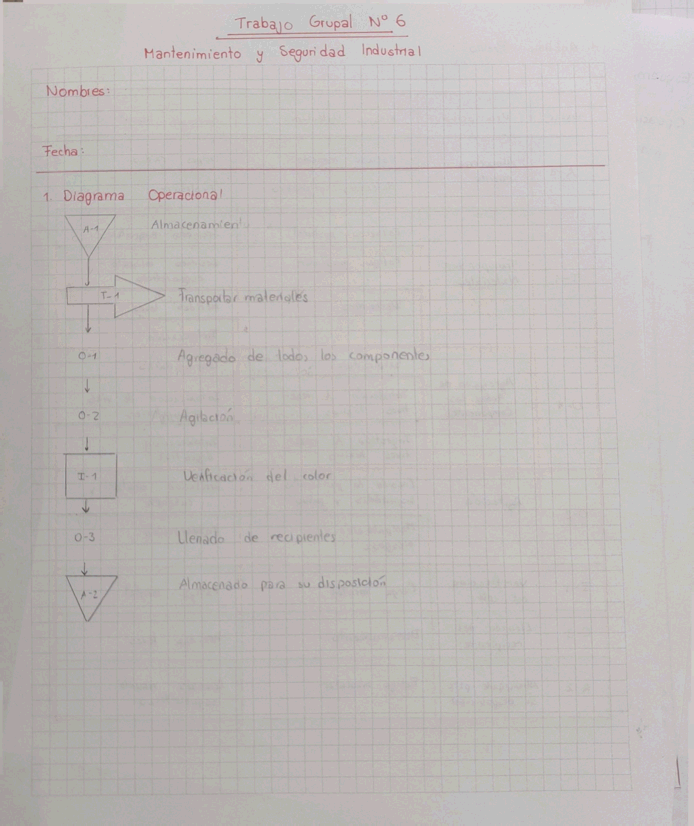 Trabajo Grupal Nº 6
Mantenimiento y Seguridad Industrial
Nombres:
Fecha:
1. Diagrama Operacional
A-1 Almacenamiento
T-1 Transportar materiales
O-1 Agregado de todos los componentes
O-2 Agitación
I-1 Verificación del color
O-3 Llenado de recipientes
A-2 Almacenado para su disposición